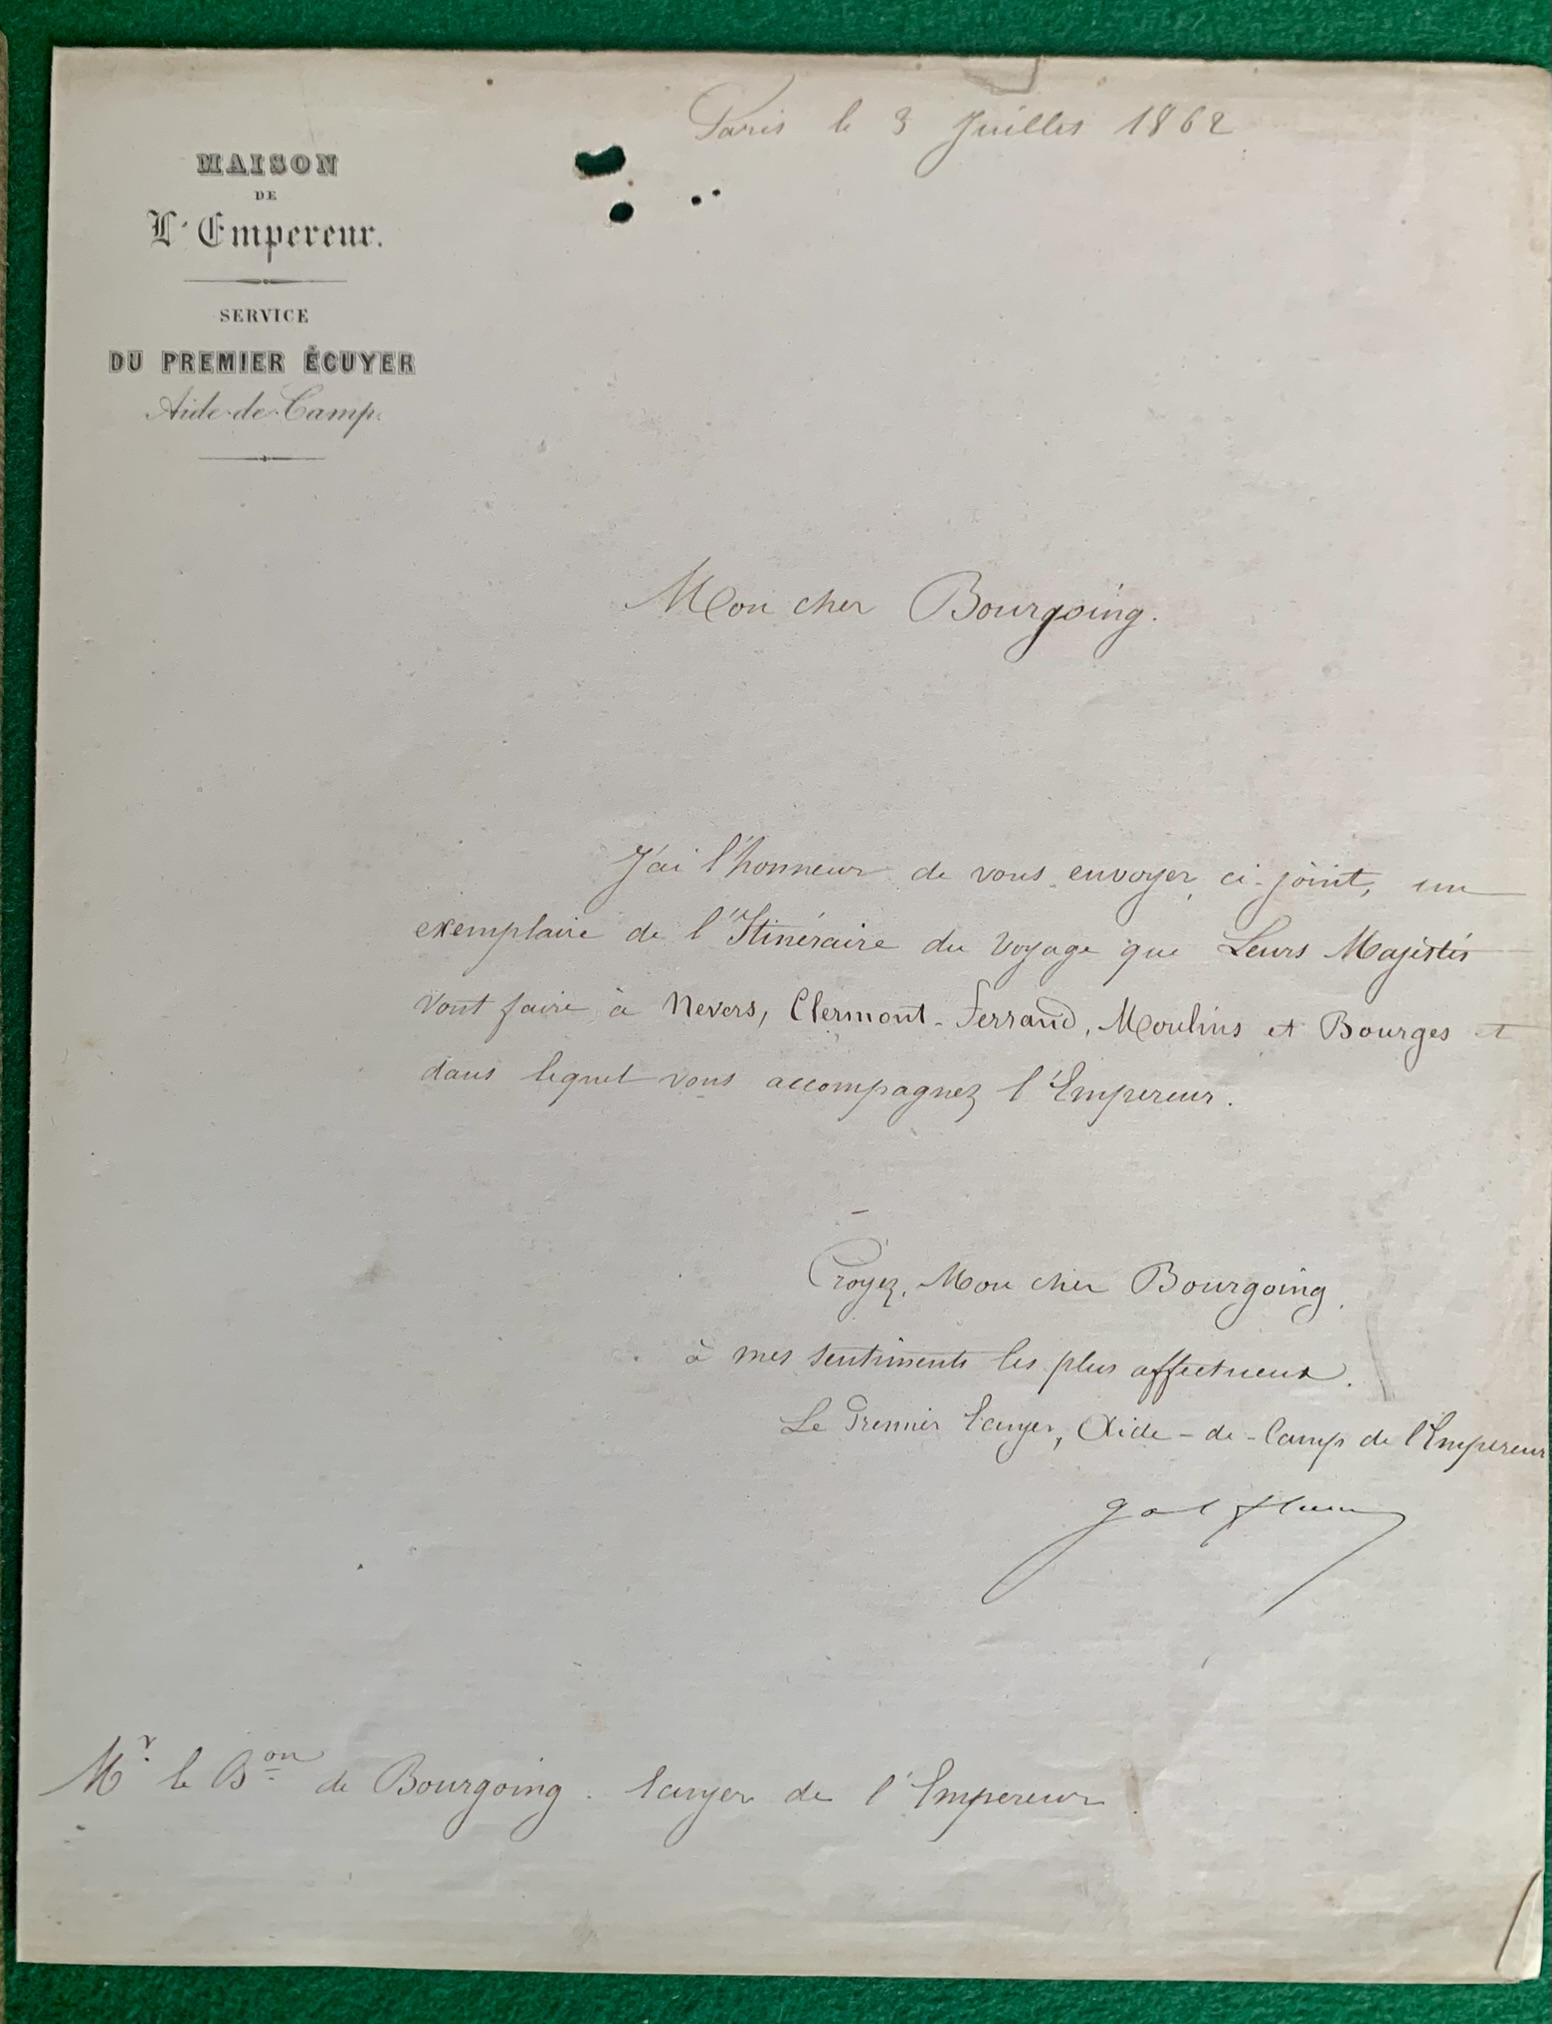 Paris le 3 Juillet 1862
MAISON
DE
L'Empereur.
SERVICE
DU PREMIER ÉCUYER
Aide-de-Camp.
Mon cher Bourgoing.
J'ai l'honneur de vous envoyer, ci-joint, un
exemplaire de l'Itinéraire du Voyage que Leurs Majestés
vont faire à Nevers, Clermont-Ferrand, Moulins et Bourges et
dans lequel vous accompagnez l'Empereur.
Croyez, Mon cher Bourgoing,
à mes sentiments les plus affectueux.
Le Premier Ecuyer, Aide-de-Camp de l'Empereur
Gal Fleury
Mr le Bon de Bourgoing. Ecuyer de l'Empereur